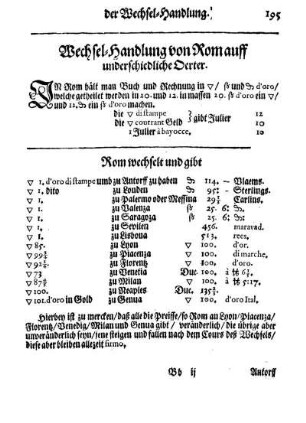 der Wechsel-Handlung. 195
Wechsel-Handlung von Rom auff
underschiedliche Oerter.
IN Rom hält man Buch und Rechnung in ▽/ ß und ₰ d'oro/
welche getheilet werden in 20. und 12. in massen 20. ß d'oro ein ▽/
und 12. ₰ ein ß d'oro machen.
die ▽ di stampe } gibt Julier 12
die ▽ courant Geld 10
1 Julier à bayocce. 10
Rom wechselt und gibt
▽ 1. d'oro di stampe und zu Antorff zu haben ₰ 114. Vlaems.
▽ 1. dito zu Londen ₰ 95: Sterlings.
▽ 1. zu Palermo oder Messina 29⅔ Carlins.
▽ 1. zu Valenza ß 25. 6: ₰.
▽ 1. zu Saragoza ß 25. 6: ₰.
▽ 1. zu Sevilien 456. maravad.
▽ 1. zu Lisbona 513. rees.
▽ 85. zu Lyon ▽ 100. d'or.
▽ 99 zu Piacenza ▽ 100. di marche.
▽ 92 zu Florentz ▽ 100. d'oro.
▽ 73 zu Venetia Duc. 100. à ℔ 6⅔.
▽ 87 zu Milan ▽ 100. à ℔ 5:17.
▽ 100. zu Neaples Duc. 135
▽ 101. d'oro in Gold zu Genua ▽ 100. d'oro Ital.
Hierbey ist zu mercken/ daß alle die Preisse/ so Rom an Lyon/ Piacenza/
Florentz/ Venedig/ Milan und Genua gibt/ veränderlich/ die übrige aber
unveränderlich seyn/ jene steigen und fallen nach dem Cours des Wechsels/
diese aber bleiben allezeit firmo.
Bb ij Antorff